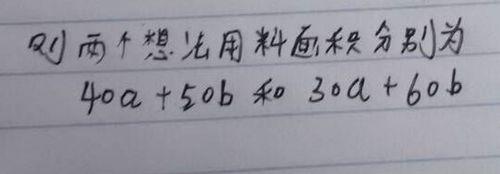 则两个想法用料面积分别为
40a+50b 和 30a+60b